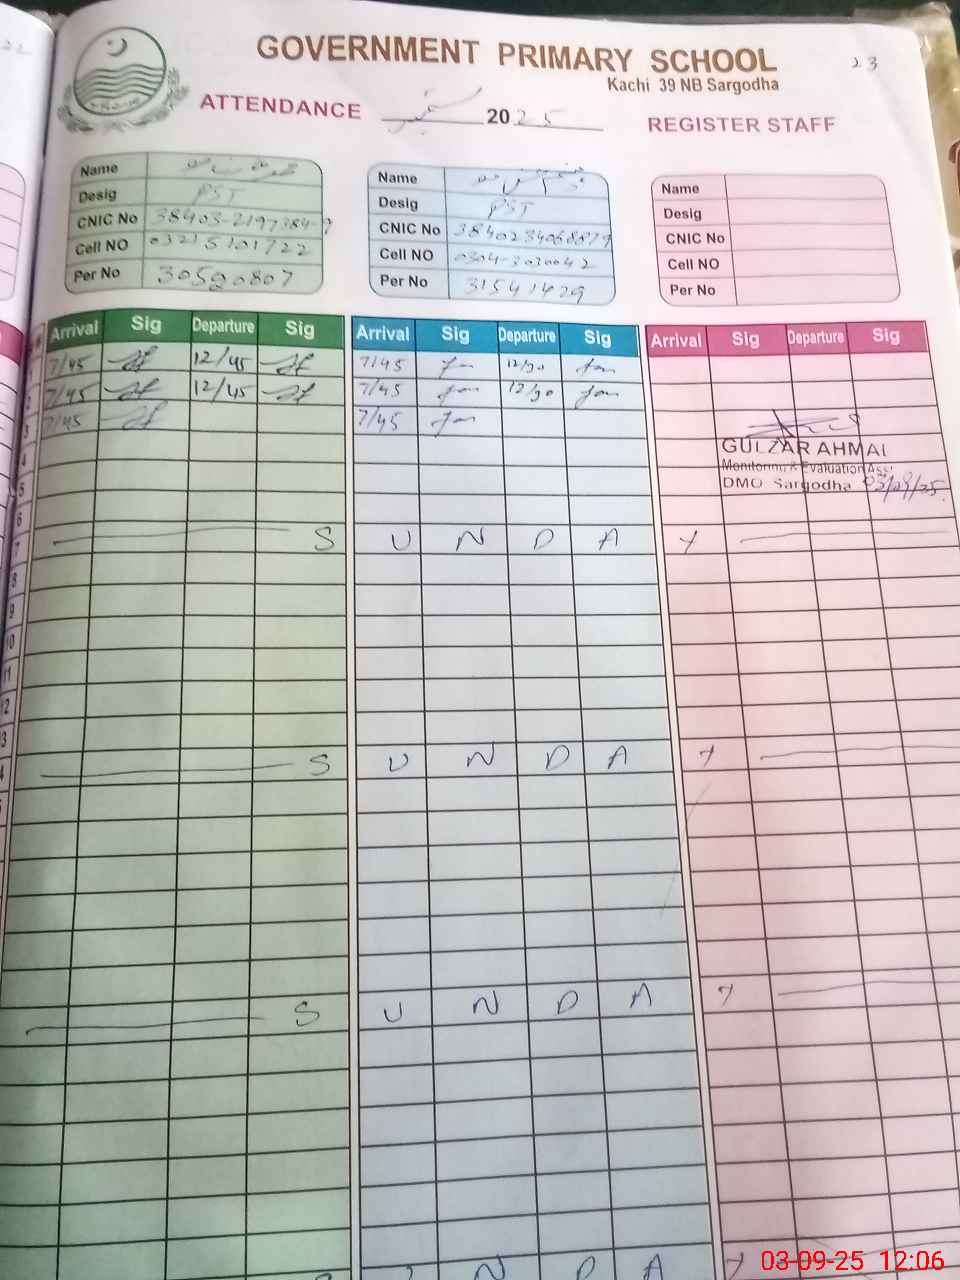 22
23
GOVERNMENT PRIMARY SCHOOL
Kachi 39 NB Sargodha
ATTENDANCE ستمبر 2025 REGISTER STAFF
Name
Desig PST
CNIC No 38403-2197384-9
Cell NO 03215101722
Per No 30590807
Name
Desig PST
CNIC No 3840234068879
Cell NO 0304-3030042
Per No 31541429
Name
Desig
CNIC No
Cell NO
Per No
Arrival Sig Departure Sig Arrival Sig Departure Sig Arrival Sig Departure Sig
1 7/45 12/45 7/45 12/30
2 7/45 12/45 7/45 12/30
3 7/45 7/45
GULZAR AHMAD
Monitoring & Evaluation Asst
DMO Sargodha 03/09/25
4
5
6
7 S U N D A Y
8
9
10
11
12
13
14 S U N D A Y
S U N D A Y
S U N D A Y
03-09-25 12:06